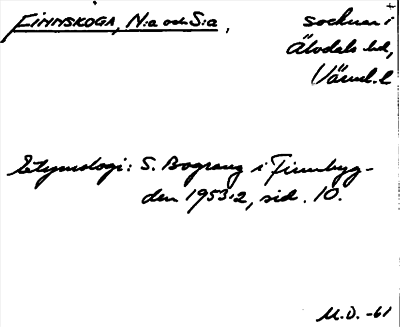 FINNSKOGA, N:a och S:a, socknar i
Älvdals hd,
Värml. l
Etymologi: S. Bograng i Finnbyg-
den 1953:2, sid. 10.
M.O. -61